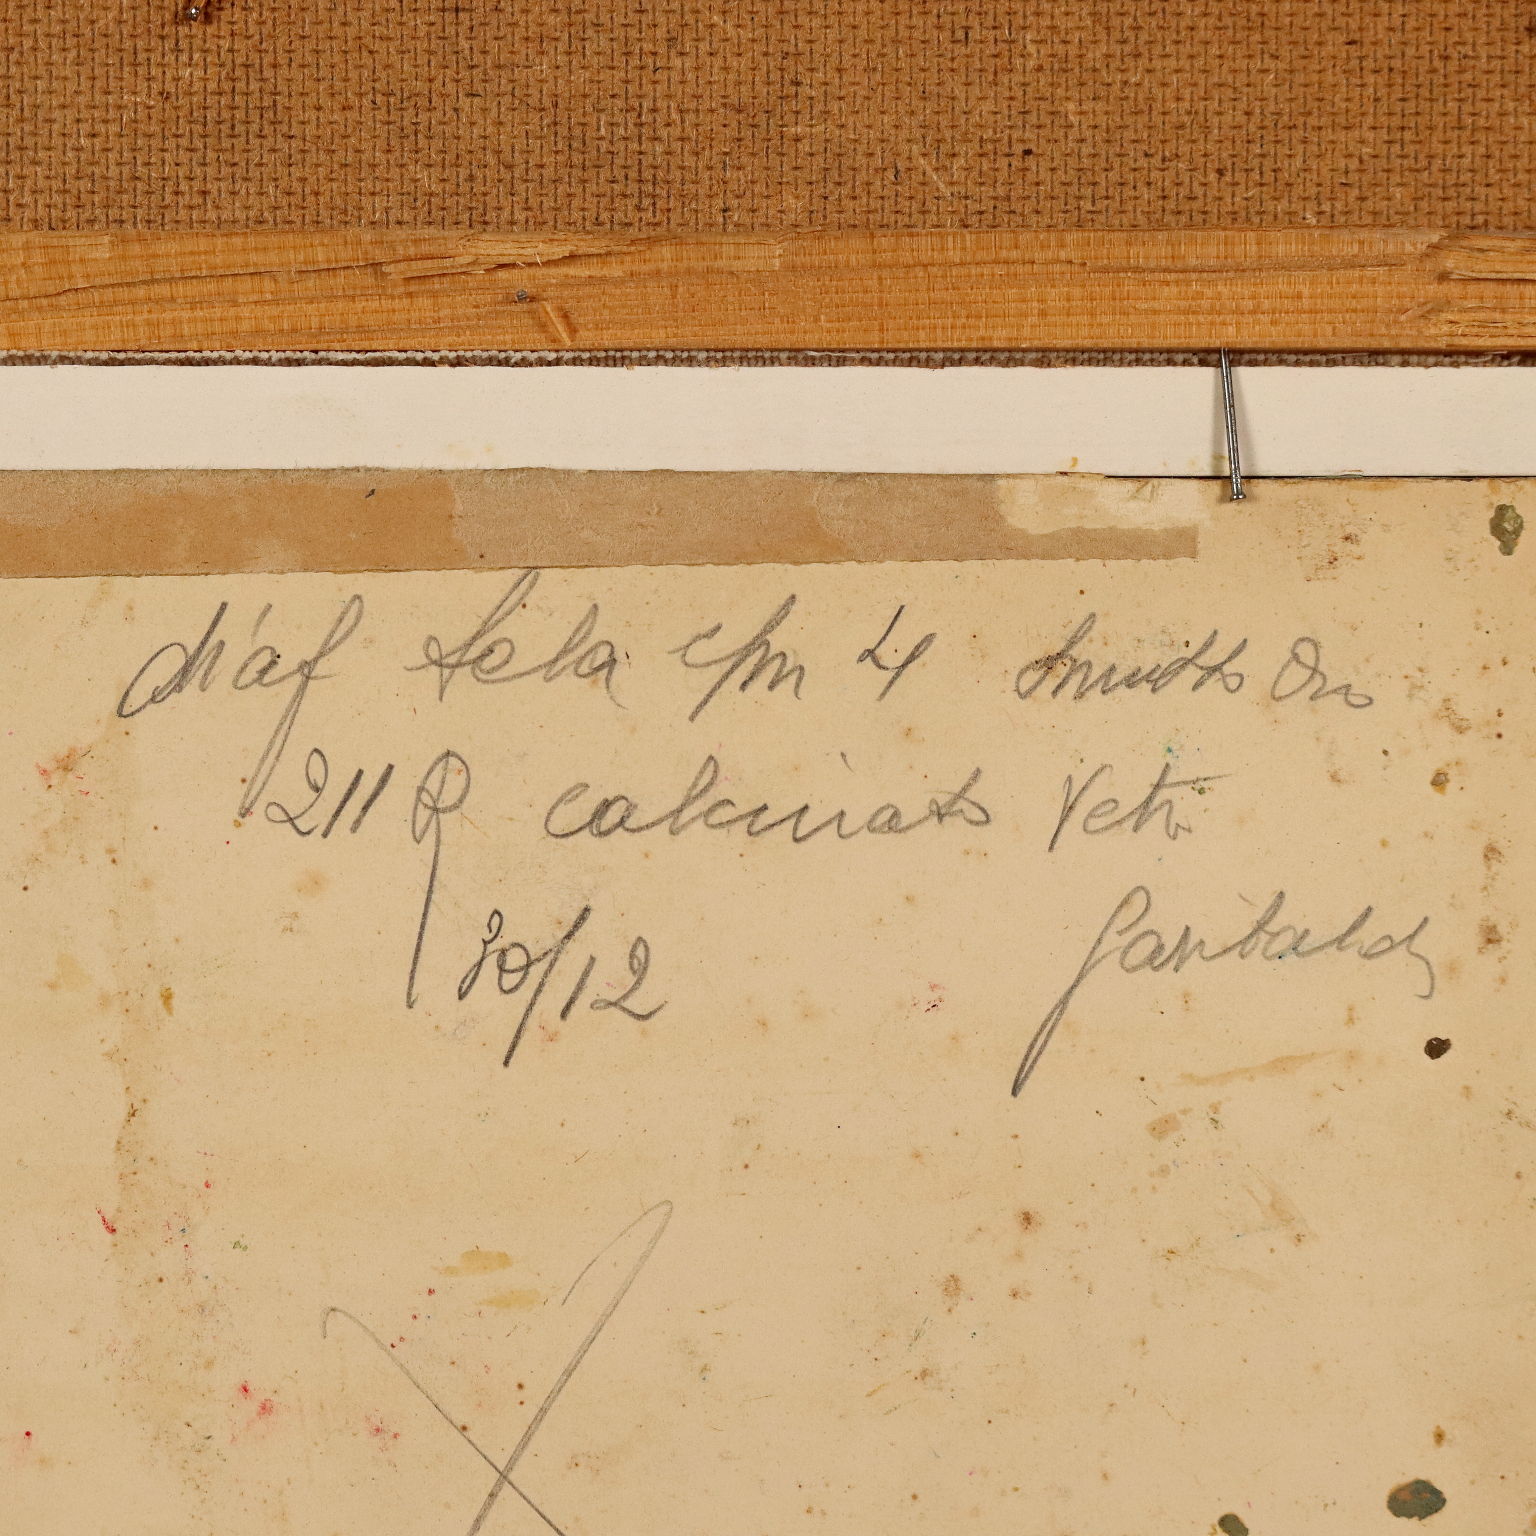 diaf tela c/m 4
211 R calcinato Vetr
30/12 Garibaldi